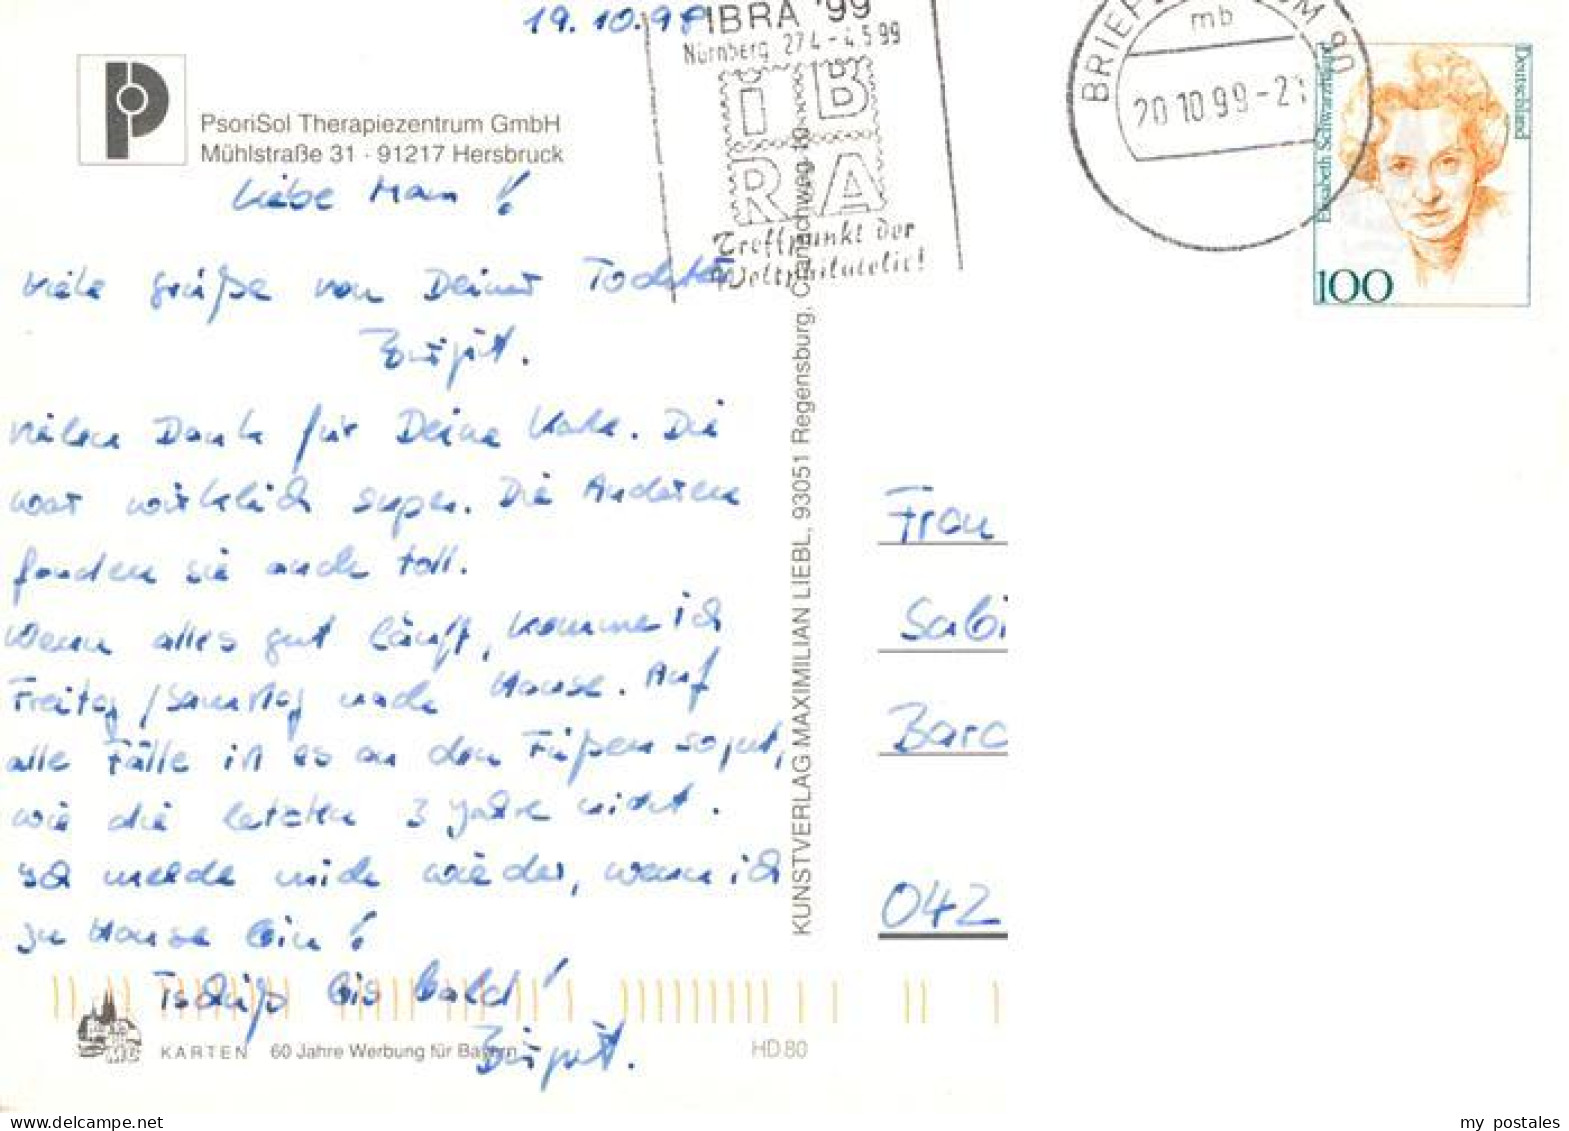 19.10.98
IBRA '99
Nürnberg 27.4-4.5.99
IBRA
Treffpunkt der
Weltphilatelie!
BRIEFZENTRUM 90
mb
20.10.99-21
Deutschland
Elisabeth Schwarzhaupt
100
PsoriSol Therapiezentrum GmbH
Mühlstraße 31 · 91217 Hersbruck
Liebe Mam !
viele grüße von Deiner Tochter
Birgit.
vielen Dank für Deine Karte. Die
war wirklich super. Die Anderen
fanden sie auch toll.
Wenn alles gut läuft, komme ich
Freitag/Samstag nach Hause. Auf
alle Fälle ist es an den Füßen so gut,
wie die letzten 3 Jahre nicht.
Ich melde mich wieder, wenn ich
zu Hause bin!
Tschüß bis bald!
Birgit.
KARTEN 60 Jahre Werbung für Bayern
HD.80
KUNSTVERLAG MAXIMILIAN LIEBL, 93051 Regensburg, Cranachweg 10
Frau
Sabi
Barc
042
my postales